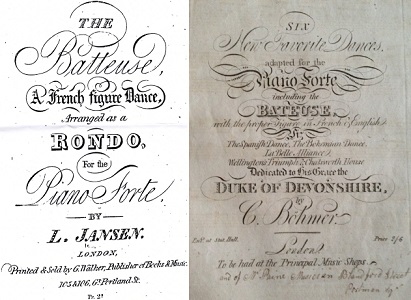 THE
Batteuse,
A French figure Dance,
Arranged as a
RONDO,
For the
Piano Forte.
BY
L. JANSEN.
LONDON,
Printed & Sold by G. Walker, Publisher of Books & Music.
105 & 106 Gt. Portland St.
SIX
New Favorite Dances,
adapted for the
Piano Forte
including the
BATEUSE,
with the proper Figure in French & English,
The Spanish Dance, The Bohemian Dance,
La Belle Alliance,
Wellington's Triumph & Chatsworth House
Dedicated to His Grace the
DUKE OF DEVONSHIRE,
by
C. Böhmer.
Ent. at Sta. Hall. Price 2/6
London
To be had at the Principal Music Shops.
and of Mr. Blandford Street
Portman Sq.